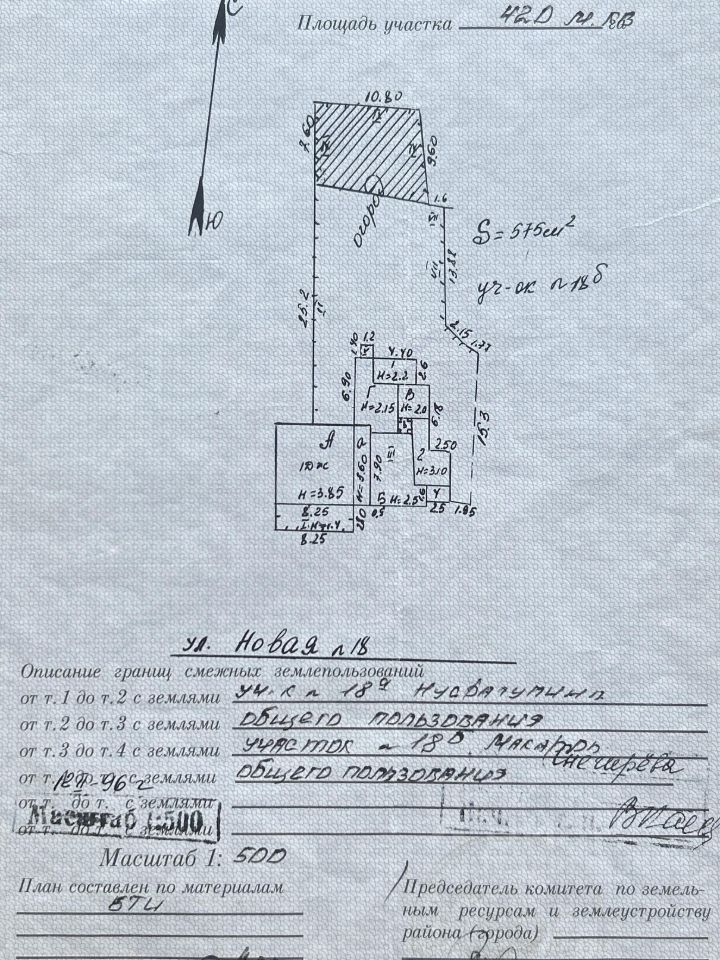 С
Площадь участка 420 м.кв
10.80
IV
7.60
IV
IV
9.60
1.6
Ю
огород
VII
S=575м²
VII
13.88
уч-ок №18б
25.2
II
2.15
1.77
1.2
1.90
4.40
1
Н=2.2
2.6
6.90
Г
Н=2.15
В
Н=2.0
6.18
15.3
А
а
7.90
III
2.50
2
1Дж
Н=3.60
Н=3.10
Н=3.85
Б
Н=2.5
У
8.25
2.80
0.5
2.5
1.85
8.25
ул. Новая №18
Описание границ смежных землепользований
от т.1 до т.2 с землями уч-к № 18а
от т.2 до т.3 с землями общего пользования
от т.3 до т.4 с землями участок № 18
от т. до т. с землями общего пользования
от т. до т. с землями
Масштаб 1:500
от т. до т. с землями
Масштаб 1: 500
План составлен по материалам
БТИ
Председатель комитета по земель-
ным ресурсам и землеустройству
района (города)